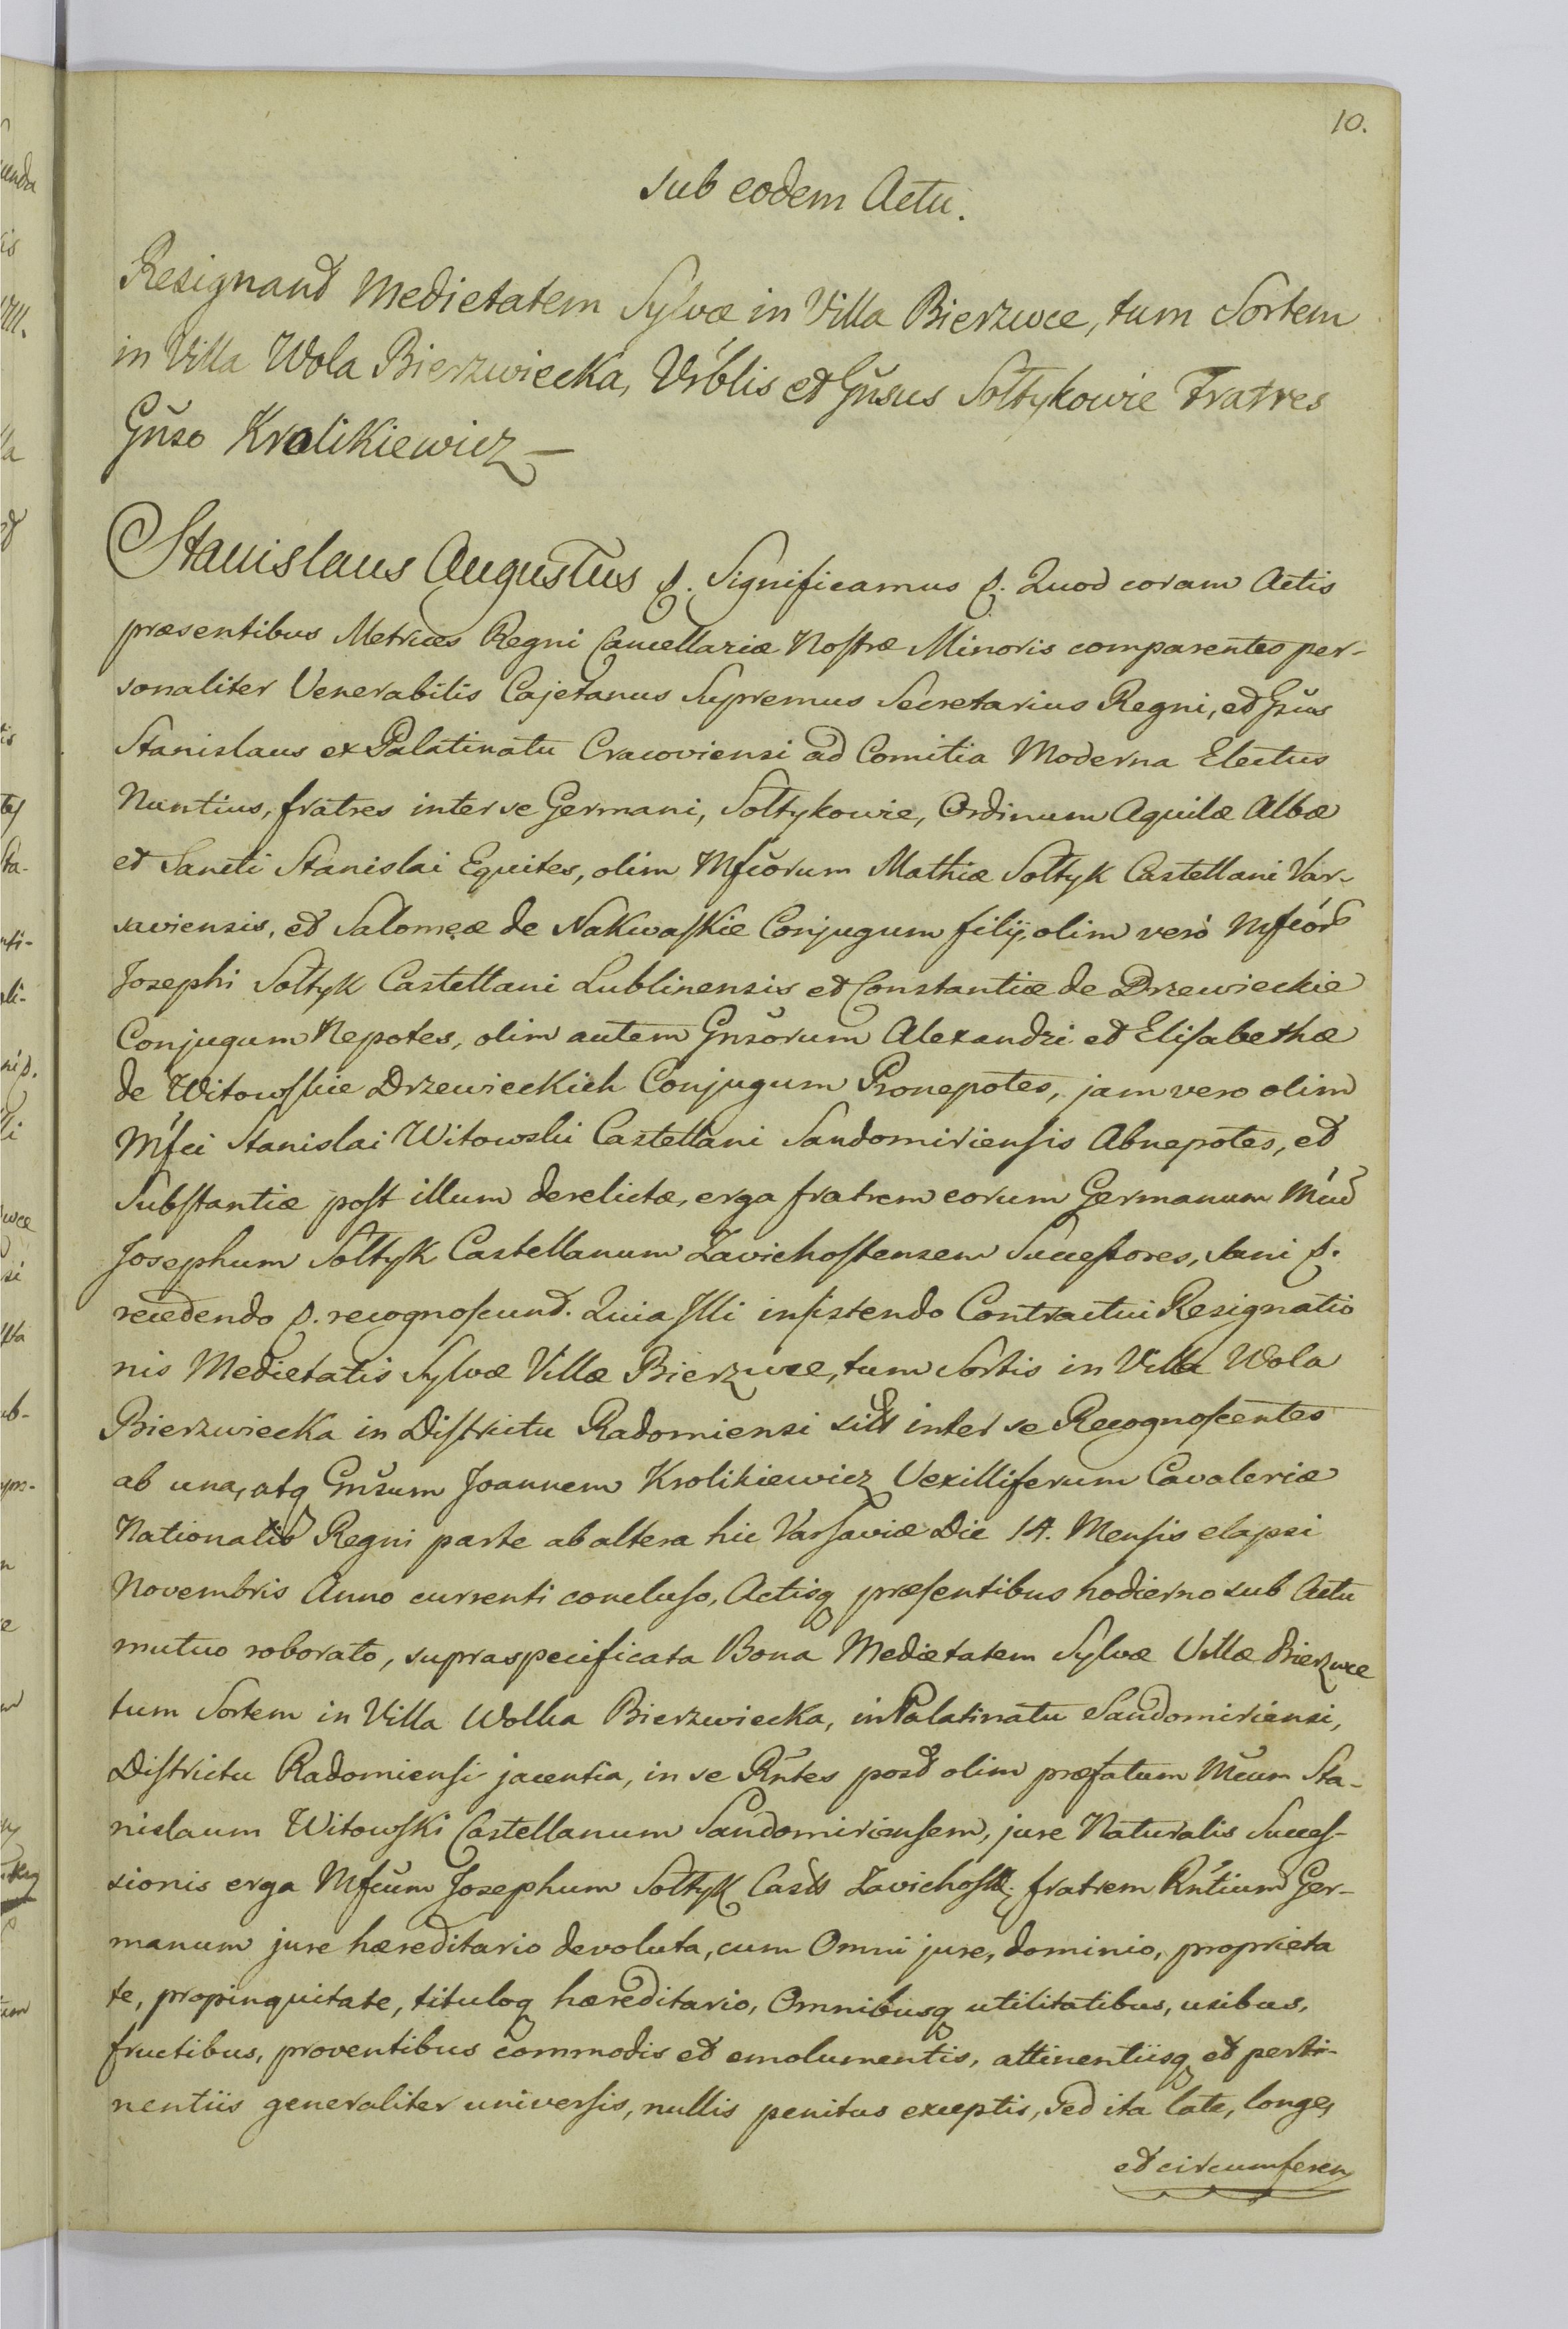 10.
sub eodem Actu.
Resignand Medietatem Sylvæ in Villa Bierzwce, tum Sortem
in Villa Wola Bierzwiecka, Vrblis et Gnsus Sołtykowie Fratres
Gnso Krolikiewicz —
Stanislaus Augustus p. Significamus p. Quod coram Actis
præsentibus Metrices Regni Cancellariæ Nostræ Minoris comparentes per-
sonaliter Venerabilis Cajetanus Supremus Secretarius Regni, et Gsus
Stanislaus ex Palatinatu Cracoviensi ad Comitia Moderna Electus
Nuntius, fratres inter se Germani, Sołtykowie, Ordinum Aquilæ Albæ
et Sancti Stanislai Equites, olim Mfcorum Mathiæ Sołtyk Castellani Var-
saviensis, et Salomeæ de Nakwaskie Conjugum filij, olim verò Mfcór
Josephi Sołtyk Castellani Lublinensis et Constantiæ de Drzewieckie
Conjugum Nepotes, olim autem Gnsorum Alexandri et Elisabethæ
de Witowskie Drzewieckich Conjugum Pronepotes, jam vero olim
Mfci Stanislai Witowski Castellani Sandomiriensis Abnepotes, et
Substantiæ post illum derelictæ, erga fratrem eorum Germanum Mcu
Josephum Sołtyk Castellanum Zavichostensem Successores, Sani p.
recedendo p. recognoscund. Quia Illi insistendo Contractui Resignatio
nis Medietatis Sylvæ Villæ Bierzwce, tum Sortis in Villa Wola
Bierzwiecka in Districtu Radomiensi inter se Recognoscentes
ab una, atq Gnsum Joannem Krolikiewicz Vexilliferum Cavaleriæ
Nationalis Regni parte ab altera hic Varsaviæ Die 14. Mensis elapsi
Novembris Anno currenti concluso, Actisq præsentibus hodierno sub Actu
mutuo roborato, supraspecificata Bona Medietatem Sylvæ Villæ Bierzwce
tum Sortem in Villa Wolka Bierzwiecka, in Palatinatu Sandomiriensi,
Districtu Radomiensi jacentia, in se Rntes post olim præfatum Mcum Sta-
nislaum Witowski Castellanum Sandomiriensem, jure Naturalis Succes-
sionis erga Mfcum Josephum Sołtyk Zavichost. fratrem Rntium Ger-
manum jure hæreditario devoluta, cum Omni jure, dominio, proprieta
te, propinquitate, tituloq hæreditario, Omnibusq utilitatibus, usibus,
fructibus, proventibus commodis et emolumentis, attinentiisq et perti-
nentiis generaliter universis, nullis penitus exceptis, sed ita late, longe,
et circumferen